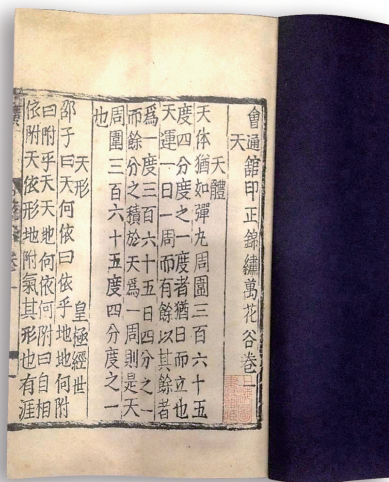 會通舘印正錦繡萬花谷卷一
天
天體
天体猶如彈丸周圍三百六十五
度四分度之一度者猶日而立也
天運一日一周而有餘以其餘者
爲一度三百六十五日四分之一
而餘分之積於天爲一周則是天
周圍三百六十五度四分度之一
也
天形 皇極經世
邵子曰天何依曰依乎地地何附
曰附乎天天地何依何附曰自相
依附天依形地附氣其形也有涯